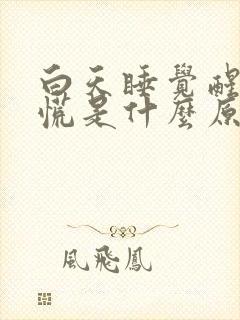 白天睡覺醒
慌是什麼原
風飛鳳